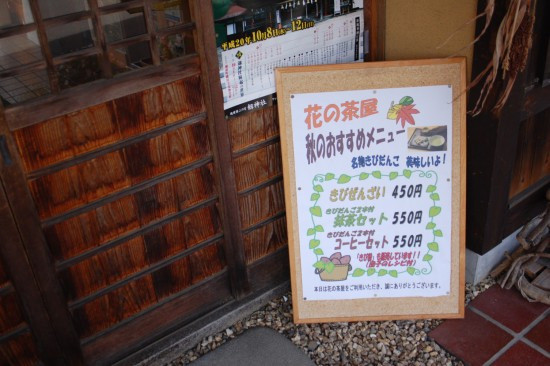 平成20年10月8日
12日
花の茶屋
秋のおすすめメニュー
名物きびだんご 美味しいよ!
きびぜんざい 450円
きびだんご2本付
抹茶セット 550円
きびだんご2本付
コーヒーセット 550円
「きび粉」も販売しています!!
(団子のレシピ付)
本日は花の茶屋をご利用いただき、誠にありがとうございます。